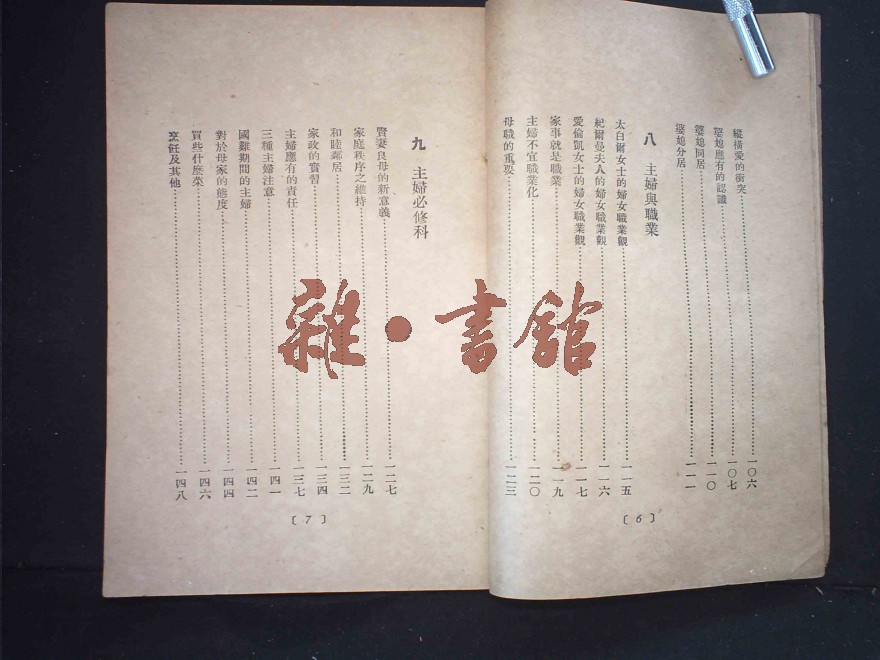 縱橫愛的衝突……一〇六
婆媳應有的認識……一〇七
婆媳同居……一一〇
婆媳分居……一一一
八 主婦與職業
太白爾女士的婦女職業觀……一一五
紀爾曼夫人的婦女職業觀……一一六
愛倫凱女士的婦女職業觀……一一七
家事就是職業……一一九
主婦不宜職業化……一二〇
母職的重要……一二三
〔6〕
九 主婦必修科
賢妻良母的新意義……一二七
家庭秩序之維持……一二九
和睦鄰居……一三二
家政的實習……一三四
主婦應有的責任……一三七
三種主婦注意……一四一
國難期間的主婦……一四二
對於母家的態度……一四四
買些什麼菜……一四六
烹飪及其他……一四八
〔7〕
雜·書館